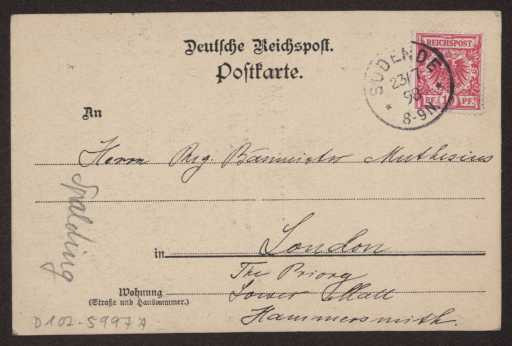 Deutsche Reichspost.
Postkarte.
REICHSPOST
10 PF.
SÜDENDE
23/7
98
8-9N.
An
Herrn Reg. Baumeister Muthesius
in London
The Priory
Wohnung
(Straße und Hausnummer.)
Lower Mall
Hammersmith.
Spalding
D102-5997